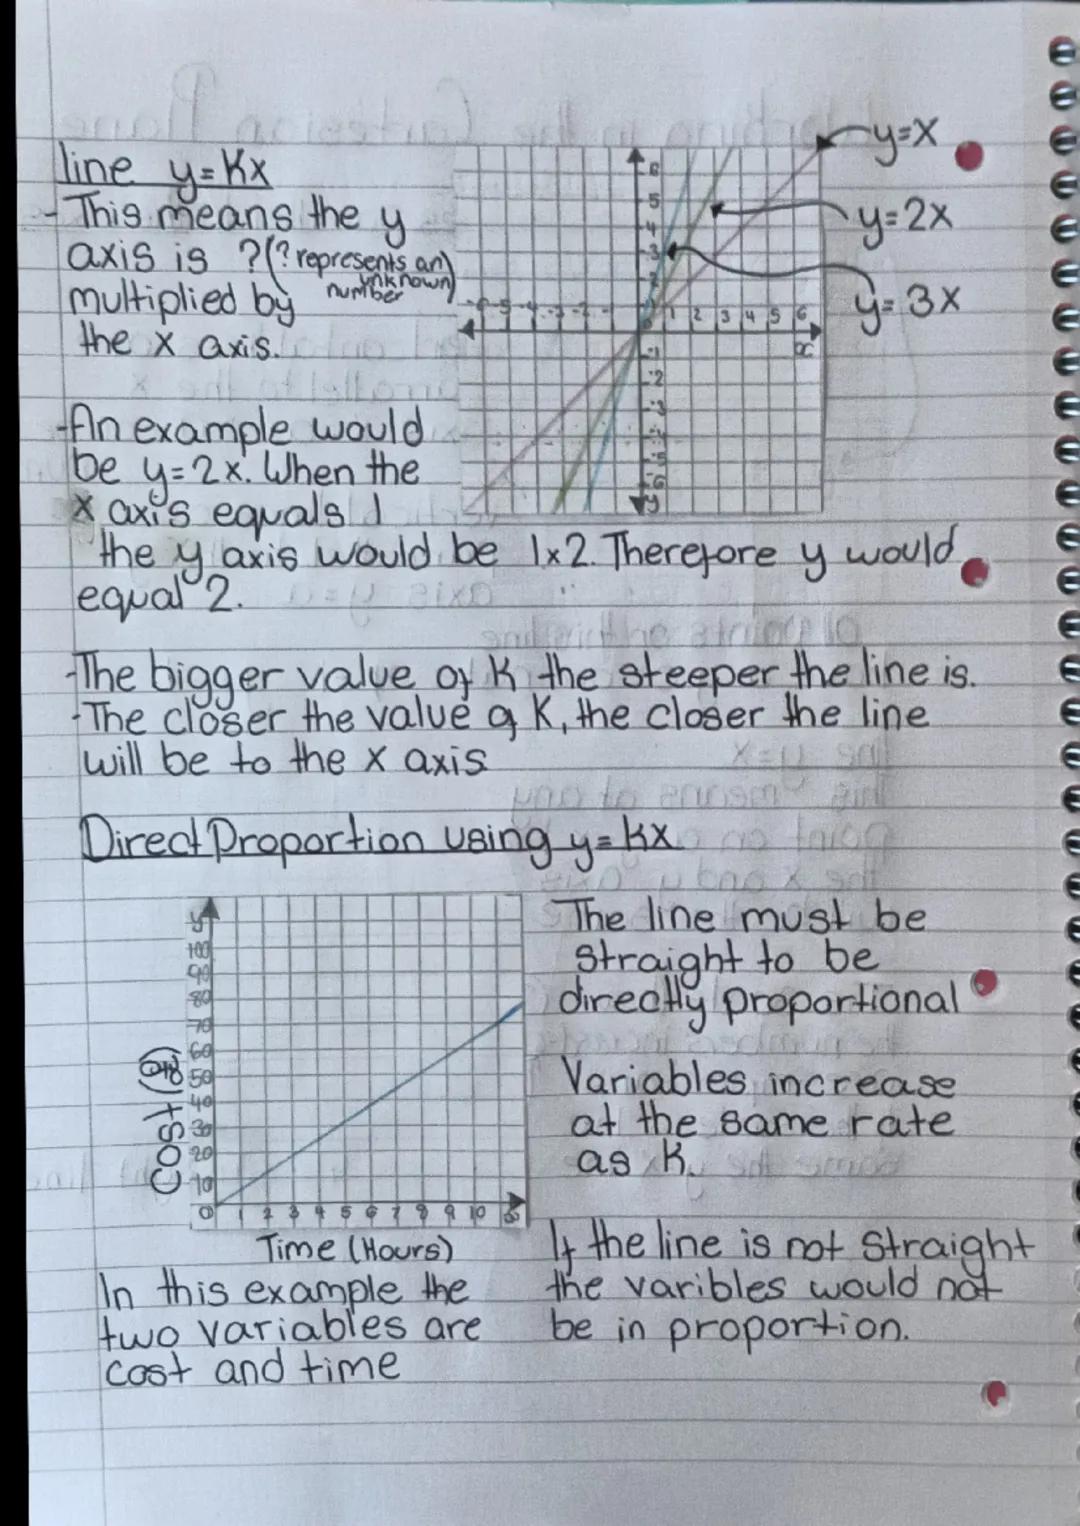 line y=Kx
- This means the y
axis is ? (? represents an unknown number)
multiplied by
the x axis.
y=x
y=2x
y=3x
6
5
4
3
1 2 3 4 5 6
x
-1
-2
-3
-6
y
- An example would
be y=2x. When the
x axis equals 1
the y axis would be 1x2. Therefore y would
equal 2.
- The bigger value of K the steeper the line is.
- The closer the value of K, the closer the line
will be to the x axis
Direct Proportion using y=kx
y
100
90
80
70
60
50
40
30
20
10
0 1 2 3 4 5 6 7 8 9 10
Cost (£)
Time (Hours)
In this example the
two variables are
cost and time
The line must be
straight to be
directly proportional
Variables increase
at the same rate
as K.
If the line is not straight
the varibles would not
be in proportion.